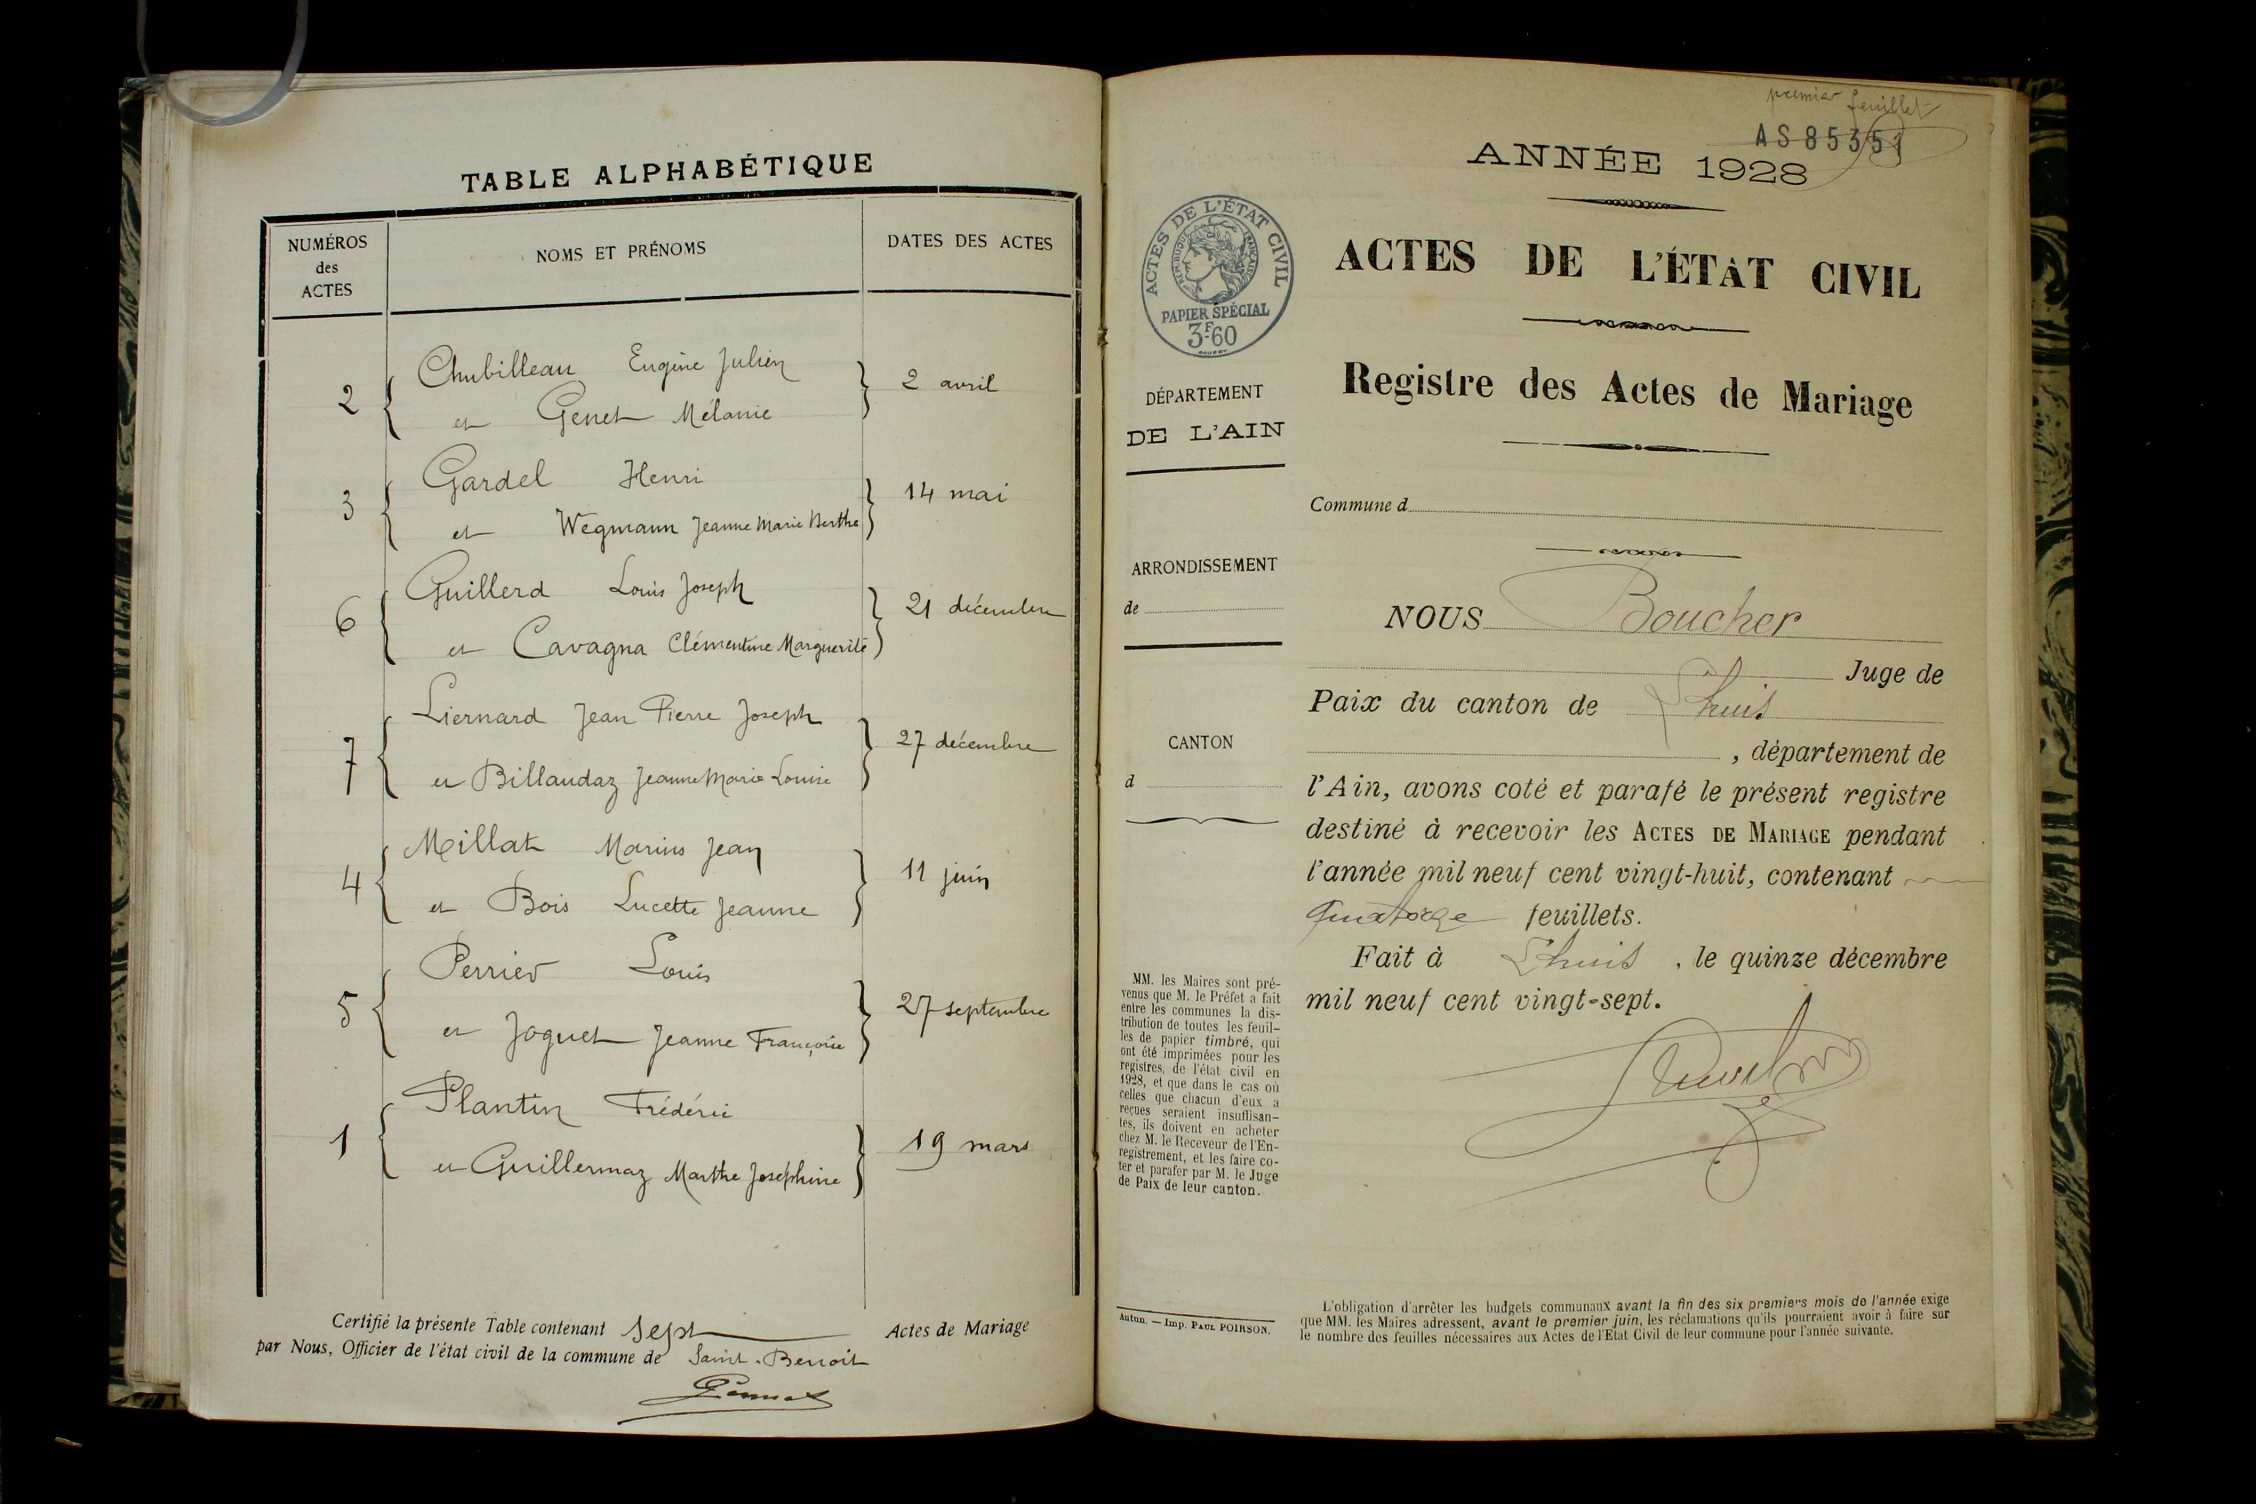 TABLE ALPHABÉTIQUE
NUMÉROS
des
ACTES
NOMS ET PRÉNOMS
DATES DES ACTES
2 Chubilleau Eugène Julien 2 avril
et Genet Mélanie
3 Gardel Henri 14 mai
et Wegmann Jeanne Marie Berthe
6 Guillerd Louis Joseph 21 décembre
et Cavagna Clémentine Marguerite
7 Liernard Jean Pierre Joseph 27 décembre
et Billaudaz Jeanne Marie Louise
4 Millat Marius Jean 11 juin
et Bois Lucette Jeanne
5 Perrier Louis 27 septembre
et Joguet Jeanne Françoise
1 Plantin Frédéric 19 mars
et Guillermaz Marthe Joséphine
Certifié la présente Table contenant sept Actes de Mariage
par Nous, Officier de l'état civil de la commune de Saint-Benoit
premier feuillet
AS 85351
ANNÉE 1928
ACTES DE L'ÉTAT CIVIL
RÉPUBLIQUE FRANÇAISE
PAPIER SPÉCIAL
3F60
ACTES DE L'ÉTAT CIVIL
Registre des Actes de Mariage
DÉPARTEMENT
DE L'AIN
Commune d
ARRONDISSEMENT
de
CANTON
d
NOUS Boucher
Juge de
Paix du canton de Lhuis
, département de
l'Ain, avons coté et parafé le présent registre
destiné à recevoir les ACTES DE MARIAGE pendant
l'année mil neuf cent vingt-huit, contenant
quatorze feuillets.
Fait à Lhuis, le quinze décembre
mil neuf cent vingt-sept.
MM. les Maires sont pré-
venus que M. le Préfet a fait
entre les communes la dis-
tribution de toutes les feuil-
les de papier timbré, qui
ont été imprimées pour les
registres, de l'état civil en
1928, et que dans le cas où
celles que chacun d'eux a
reçues seraient insuffisan-
tes, ils doivent en acheter
chez M. le Receveur de l'En-
registrement, et les faire co-
ter et parafer par M. le Juge
de Paix de leur canton.
Autun. — Imp. PAUL POIRSON.
L'obligation d'arrêter les budgets communaux avant la fin des six premiers mois de l'année exige
que MM. les Maires adressent, avant le premier juin, les réclamations qu'ils pourraient avoir à faire sur
le nombre des feuilles nécessaires aux Actes de l'Etat Civil de leur commune pour l'année suivante.